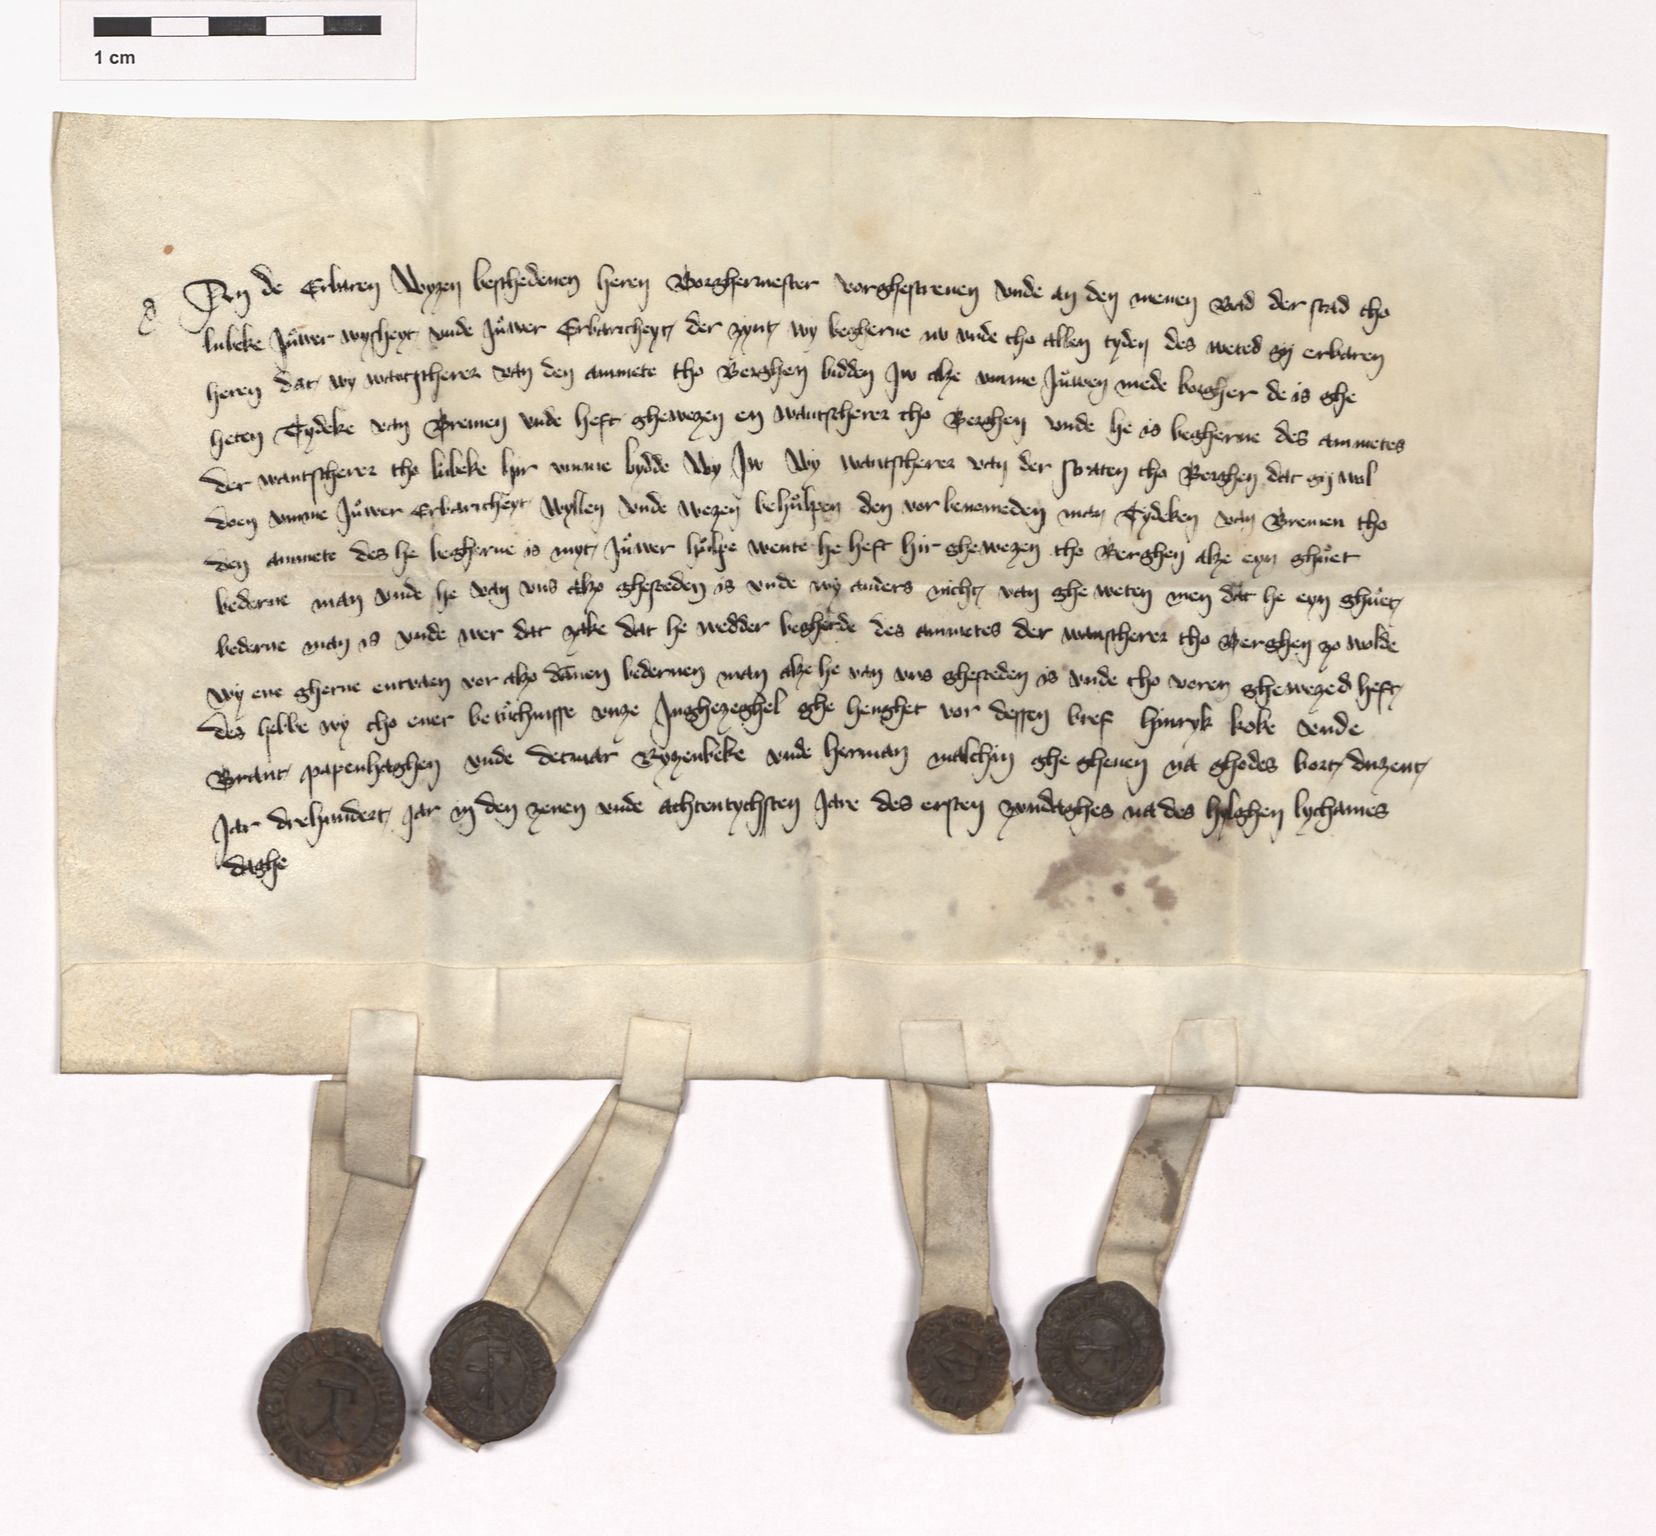 1 cm
An de Erbaren Wyzen beschedenen heren Borghermester vorghescreuen vnde an den menen Rad der stad tho
lubeke Juͦwer wysheyt vnde Juͦwer Erbaricheyt der zynt wy begherne nv vnde tho allen tyden des weted gij erbaren
heren dat wy wantscherer van den ammete tho Berghen bidden Jw alze vmme Juͦwen mede borgher de is ghe
heten Tydeke van Bremen vnde heft ghewezen en wantscherer tho Berghen vnde he is begherne des ammetes
der wantscherer tho lubeke hir vmme bydde Wy Jw Wy wantscherer van der straten tho Berghen dat gij wol
doen vmme Juͦwer Erbaricheyt wyllen vnde wezen behuͦlpen den vor benomeden man Tydeken van Bremen tho
den ammete des he begherne is myt Juͦwer huͦlpe wente he heft hir ghewezen tho Berghen alze eyn ghuͦet
bederne man vnde he van vns alzo ghesceden is vnde wy anders nicht van ghe weten men dat he eyn ghuͦet
bederne man is vnde wer dat zake dat he wedder begherde des ammetes der wantscherer tho Berghen zo wolde
wy ene gherne entvaen vor alzo dānen bedernen man alze he van vns ghesceden is vnde tho voren ghewezed heft
des hebbe wy tho ener betuͦchnisse vnze Jnghezeghel ghe henghet vor dessen bref hinryk koke vnde
Brant papenhaghen vnde detmar Ryzenbeke vnde herman malchin ghe gheuen na ghodes bort duzent
Jar drehundert jar in den zeuen vnde achtentychsten Jare des ersten zondaghes na des hylghen lychames
daghe